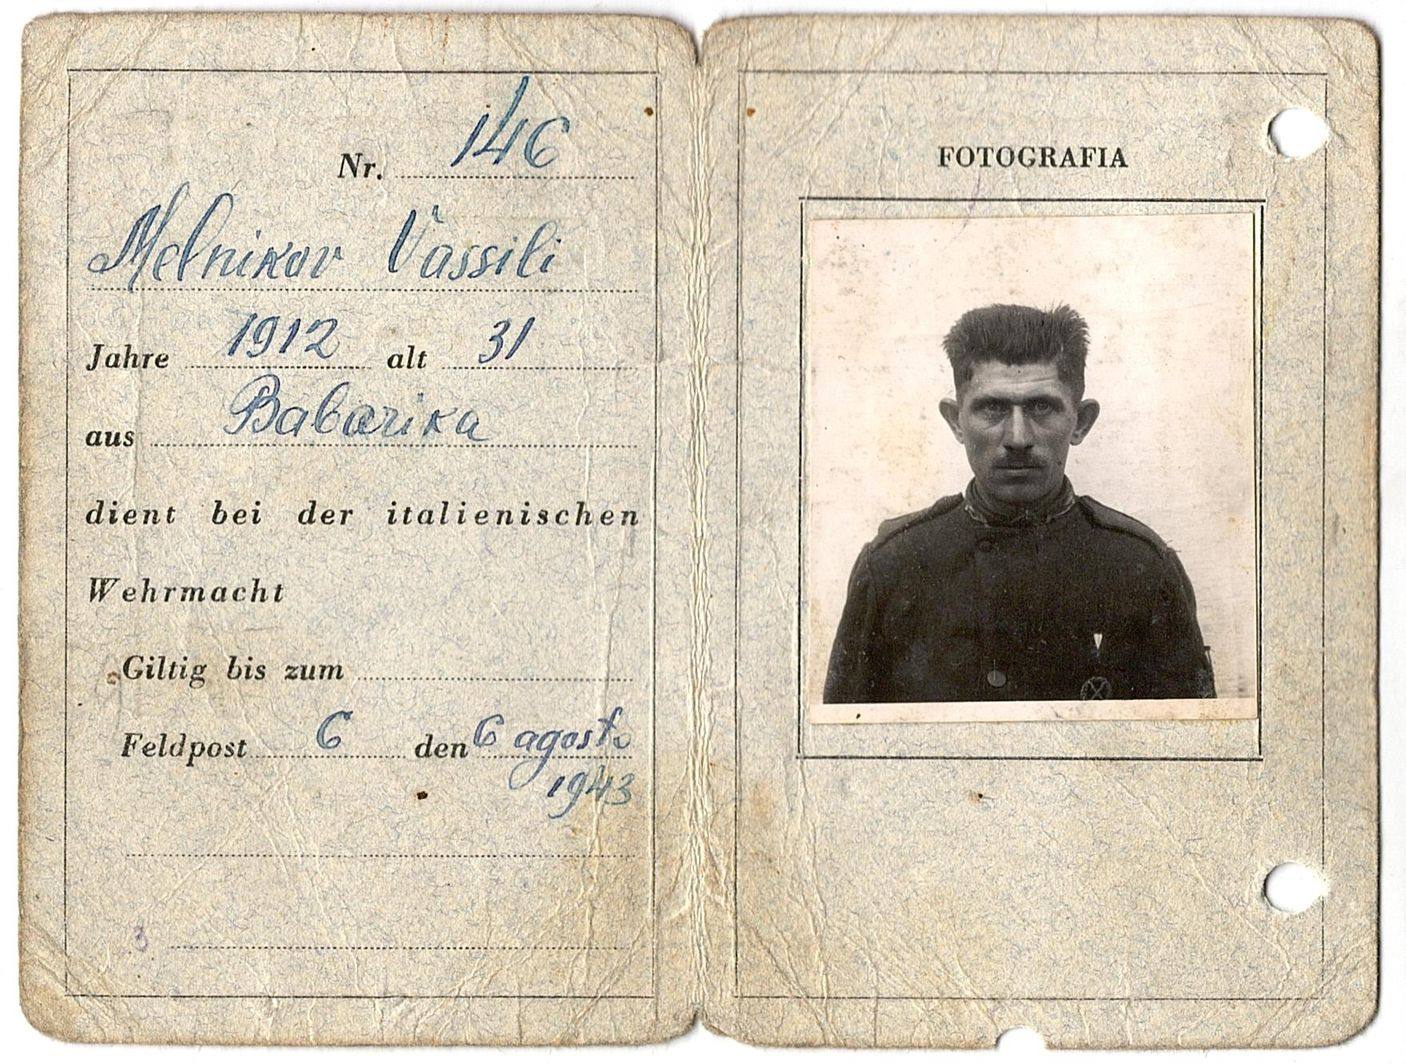 Nr. 146
Melnikov Vassili
Jahre 1912 alt 31
aus Babarika
dient bei der italienischen
Wehrmacht
Giltig bis zum
Feldpost 6 den 6 agosto
1943
3
FOTOGRAFIA